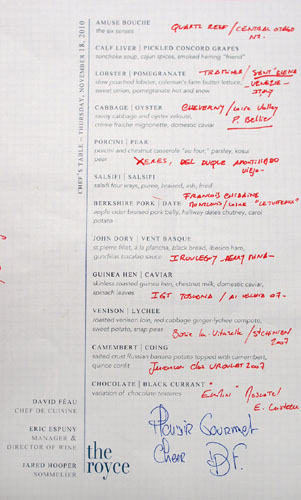 CHEF'S TABLE – THURSDAY, NOVEMBER 18, 2010
AMUSE BOUCHE
the six senses
QUARTZ REEF / CENTRAL OTAGO
NZ.
CALF LIVER | PICKLED CONCORD GRAPES
sunchoke soup, cajun spices, smoked herring "friend"
LOBSTER | POMEGRANATE
slow poached lobster, coleman's farm butter lettuce,
sweet onion, pomegranate hot and snow
VENEZIE -
ITALY
CABBAGE | OYSTER
savoy cabbage and oyster velouté,
crème fraîche mignonette, domestic caviar
CHEVERNY / Loire Valley
P. Bellier
PORCINI | PEAR
porcini and chestnut casserole "au four," parsley, kosui
pear
XERES, DEL DUQUE AMONTILLADO
VIEJO -
SALSIFI | SALSIFI
salsifi four ways, puree, braised, ash, fried
BERKSHIRE PORK | DATE
apple cider braised pork belly, halfway dates chutney, carol
potato
FRANCOIS CHIDAINE
MONTLOUIS / LOIRE
JOHN DORY | VENT BASQUE
st pierre fillet, à la plancha, black bread, iberico ham,
guindillas bacalao sauce
GUINEA HEN | CAVIAR
skinless roasted guinea hen, chestnut milk, domestic caviar,
spinach leaves
IGT TOSCANA /
VENISON | LYCHEE
roasted venison loin, red cabbage ginger-lychee compote,
sweet potato, snap peas
2007
CAMEMBERT | COING
salted crust Russian banana potato topped with camembert,
quince confit
Jurancon Clos UROULAT 2007
CHOCOLATE | BLACK CURRANT
variation of chocolate textures
Moscatel
DAVID FÉAU
CHEF DE CUISINE
ERIC ESPUNY
MANAGER &
DIRECTOR OF WINE
JARED HOOPER
SOMMELIER
the
royce
Plaisir Gourmet
Cheer D.F.